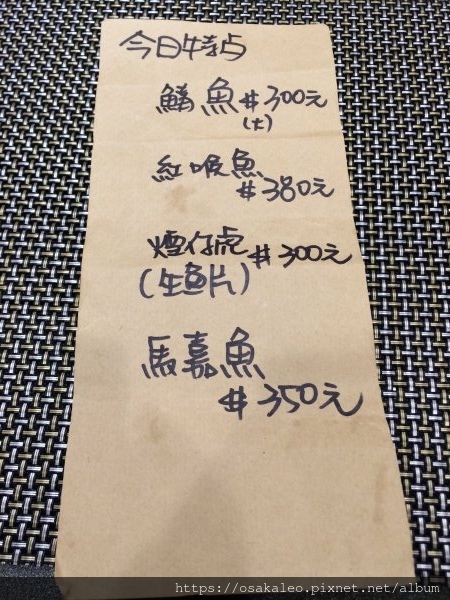 今日特点
鱔魚 #300元
(大)
紅喉魚
#380元
煙仔虎 #300元
(生魚片)
馬嘉魚
#350元
https://osakaleo.pixnet.net/album